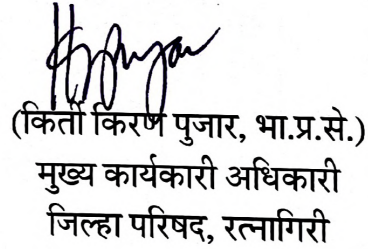 (किर्ती किरण पुजार, भा.प्र.से.)
मुख्य कार्यकारी अधिकारी
जिल्हा परिषद, रत्नागिरी